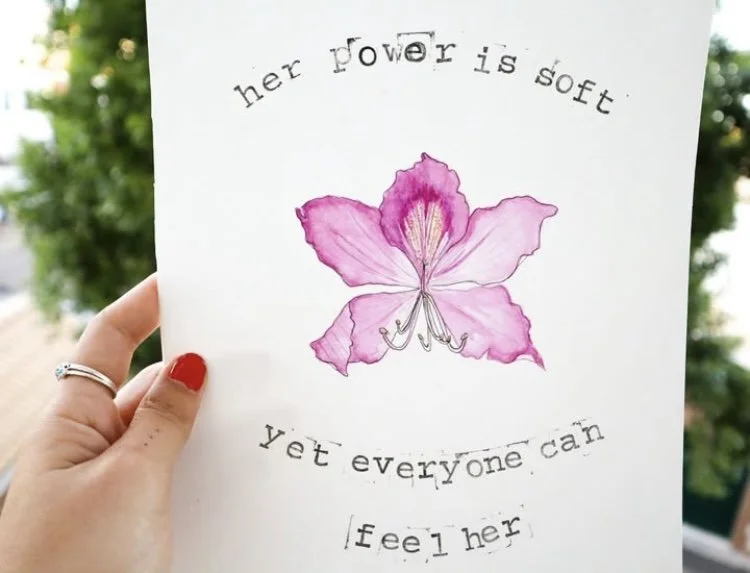 her power is soft
yet everyone can
feel her